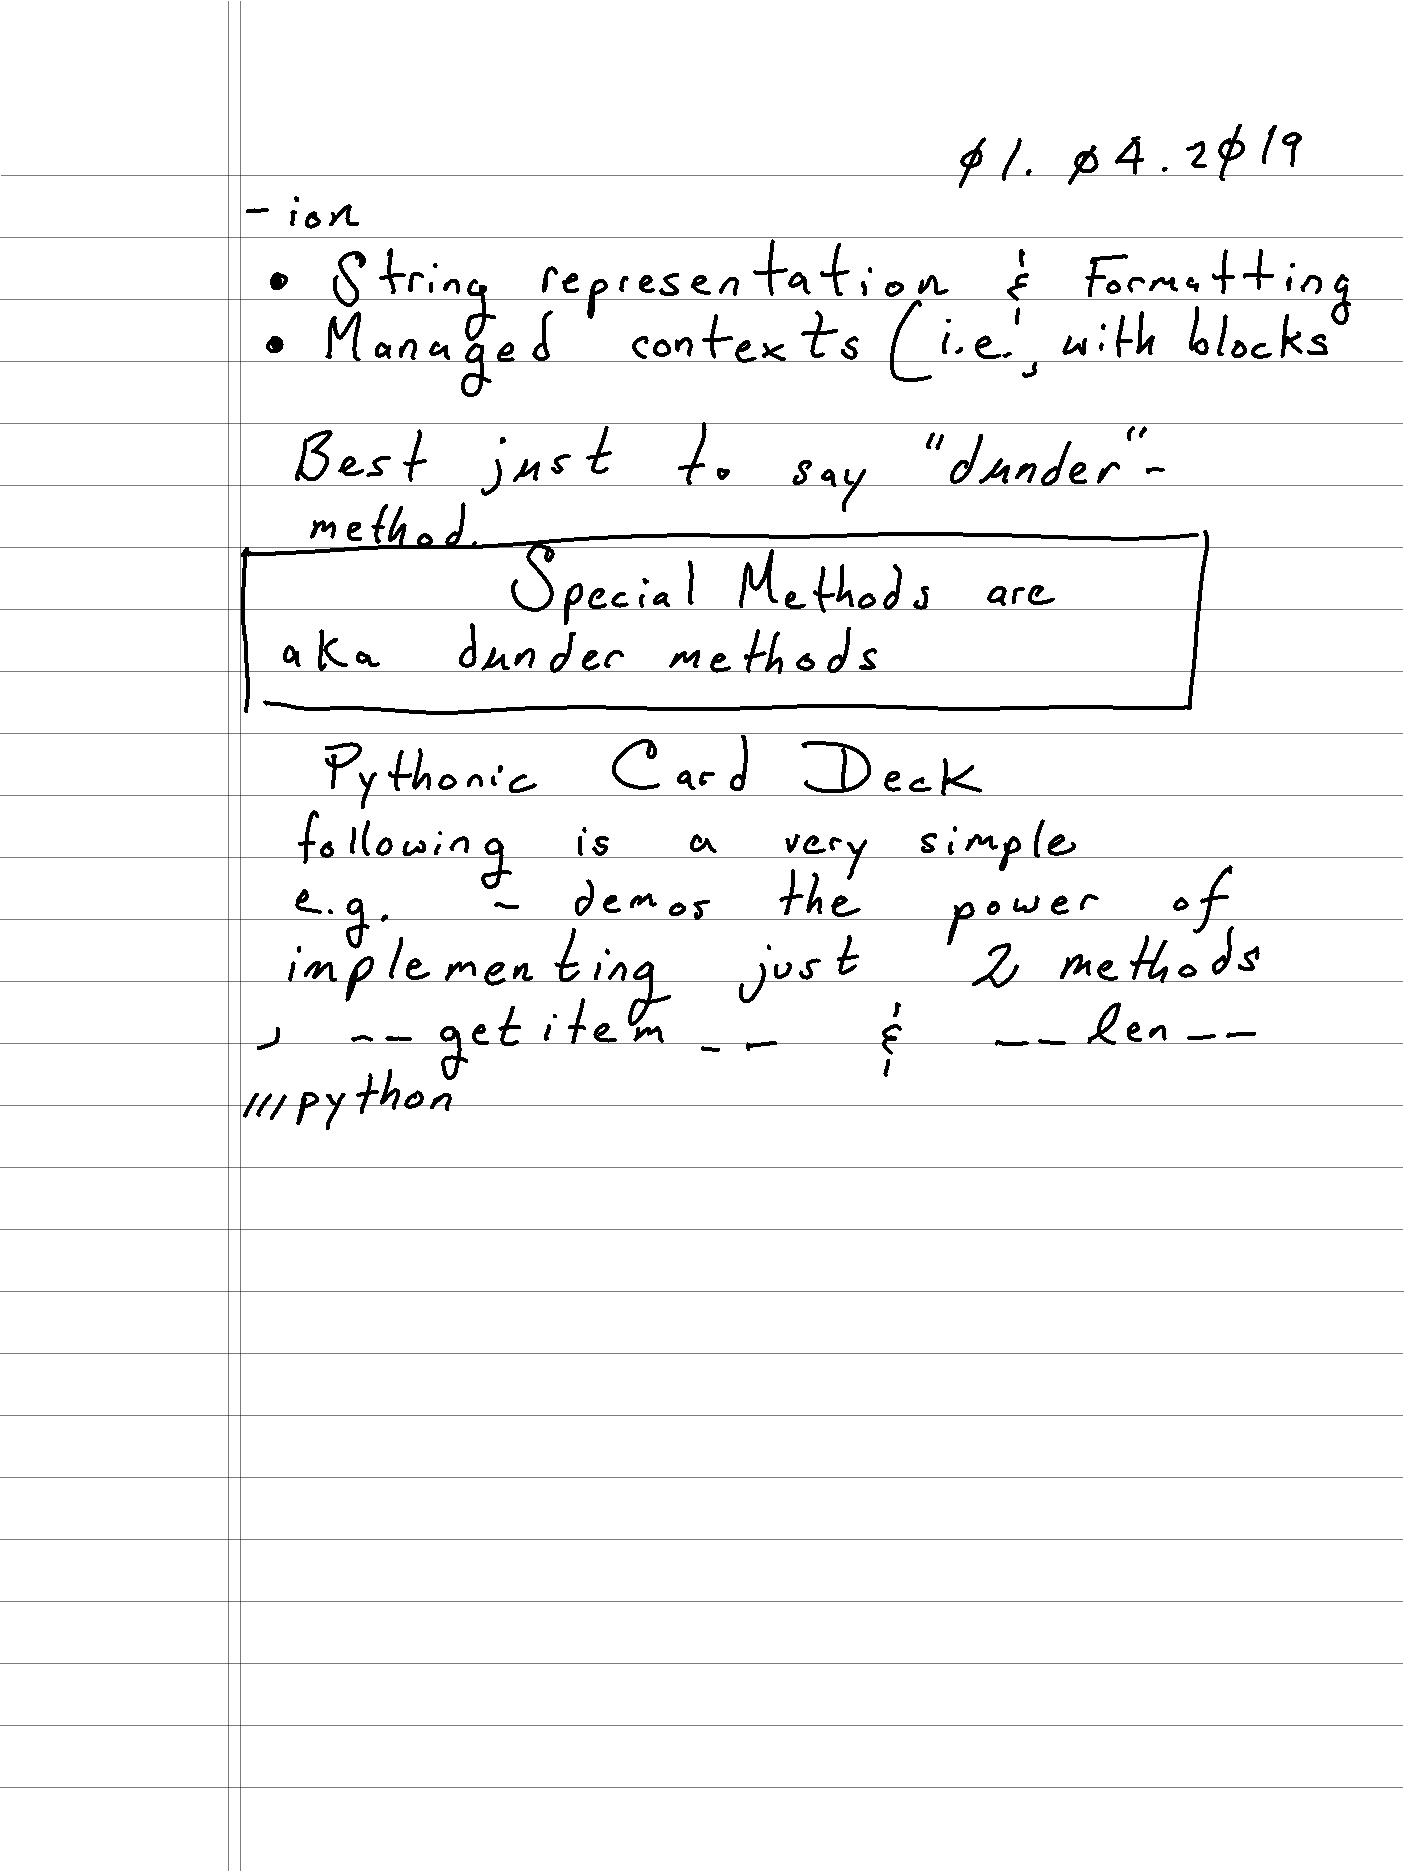 01.04.2019
- ion
• String representation & Formatting
• Managed contexts (i.e., with blocks
Best just to say "dunder"-
method.
Special Methods are
aka dunder methods
Pythonic Card Deck
following is a very simple
e.g. - demos the power of
implementing just 2 methods
, __getitem__ & __len__
///python